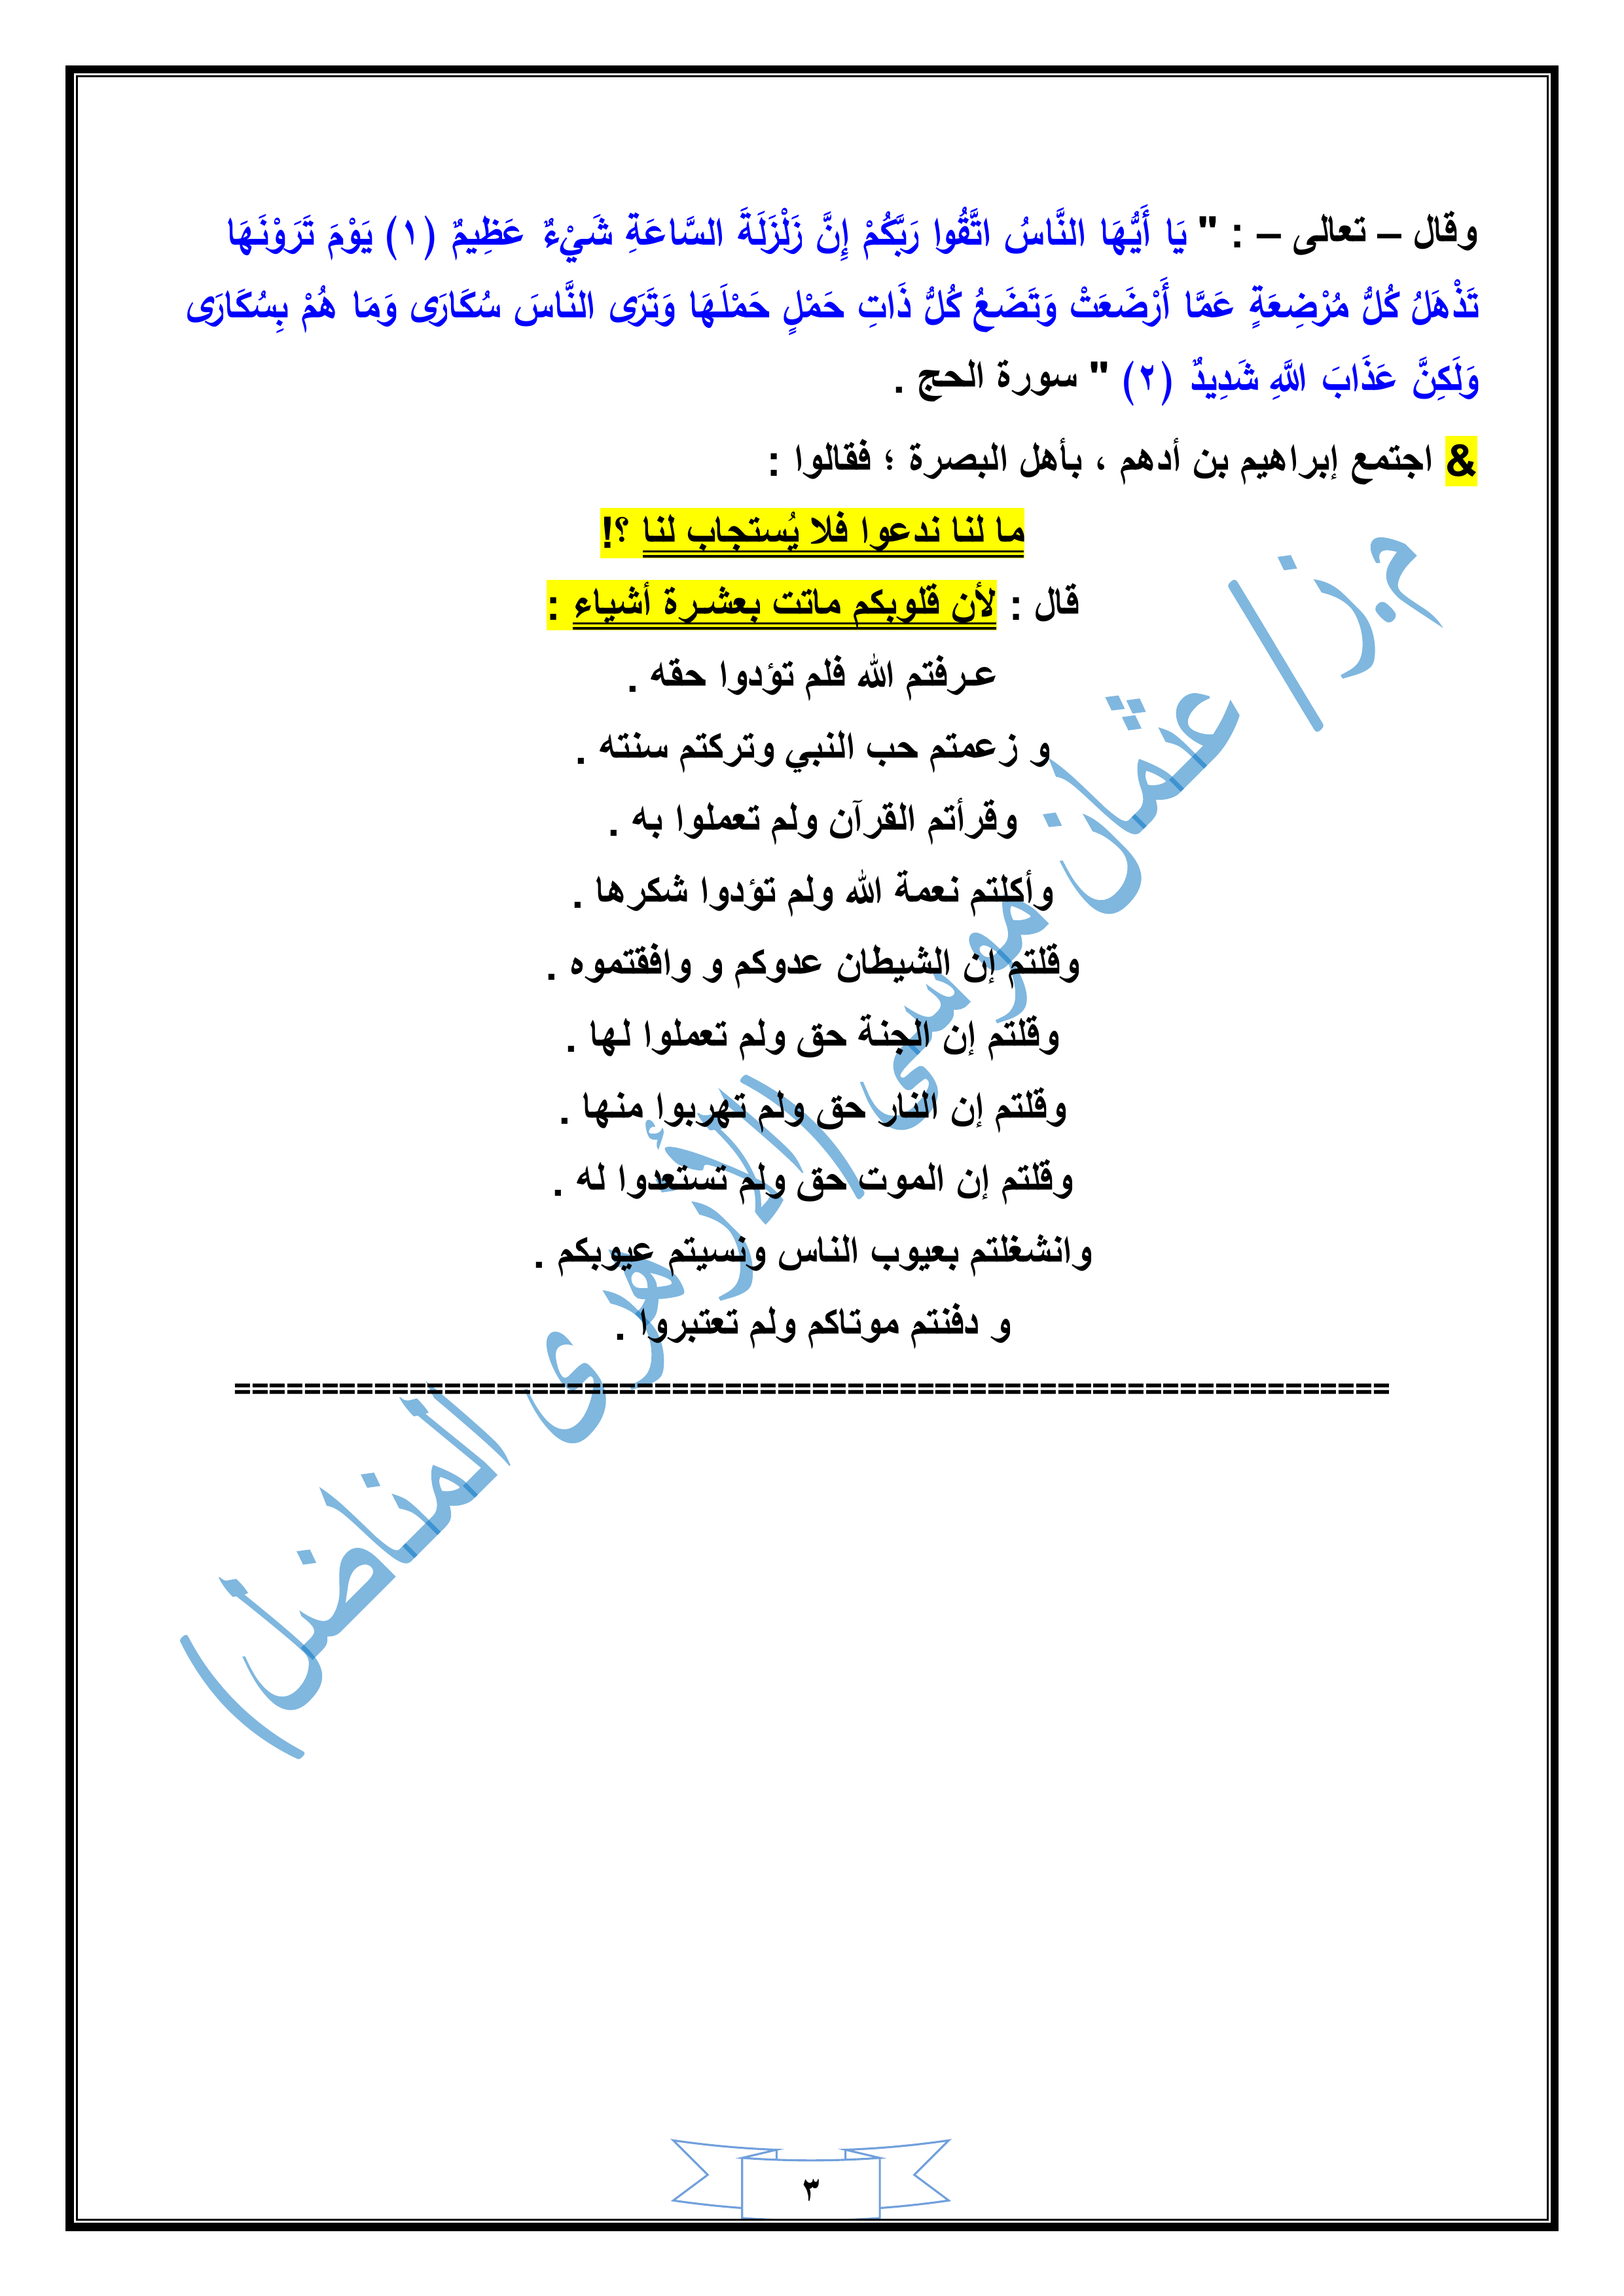 وقال – تعالى – : " يَا أَيُّهَا النَّاسُ اتَّقُوا رَبَّكُمْ إِنَّ زَلْزَلَةَ السَّاعَةِ شَيْءٌ عَظِيمٌ (١) يَوْمَ تَرَوْنَهَا
تَذْهَلُ كُلُّ مُرْضِعَةٍ عَمَّا أَرْضَعَتْ وَتَضَعُ كُلُّ ذَاتِ حَمْلٍ حَمْلَهَا وَتَرَى النَّاسَ سُكَارَى وَمَا هُمْ بِسُكَارَى
وَلَكِنَّ عَذَابَ اللَّهِ شَدِيدٌ (٢) " سورة الحج .
& اجتمع إبراهيم بن أدهم ، بأهل البصرة ؛ فقالوا :
ما لنا ندعوا فلا يُستجاب لنا ؟!
قال : لأن قلوبكم ماتت بعشرة أشياء :
عرفتم الله فلم تؤدوا حقه .
و زعمتم حب النبي وتركتم سنته .
وقرأتم القرآن ولم تعملوا به .
وأكلتم نعمة الله ولم تؤدوا شكرها .
وقلتم إن الشيطان عدوكم و وافقتموه .
وقلتم إن الجنة حق ولم تعملوا لها .
وقلتم إن النار حق ولم تهربوا منها .
وقلتم إن الموت حق ولم تستعدوا له .
وانشغلتم بعيوب الناس ونسيتم عيوبكم .
و دفنتم موتاكم ولم تعتبروا .
==================================================================
م.ز/ عثمان موسى (الأزهرى المناضل)
٣